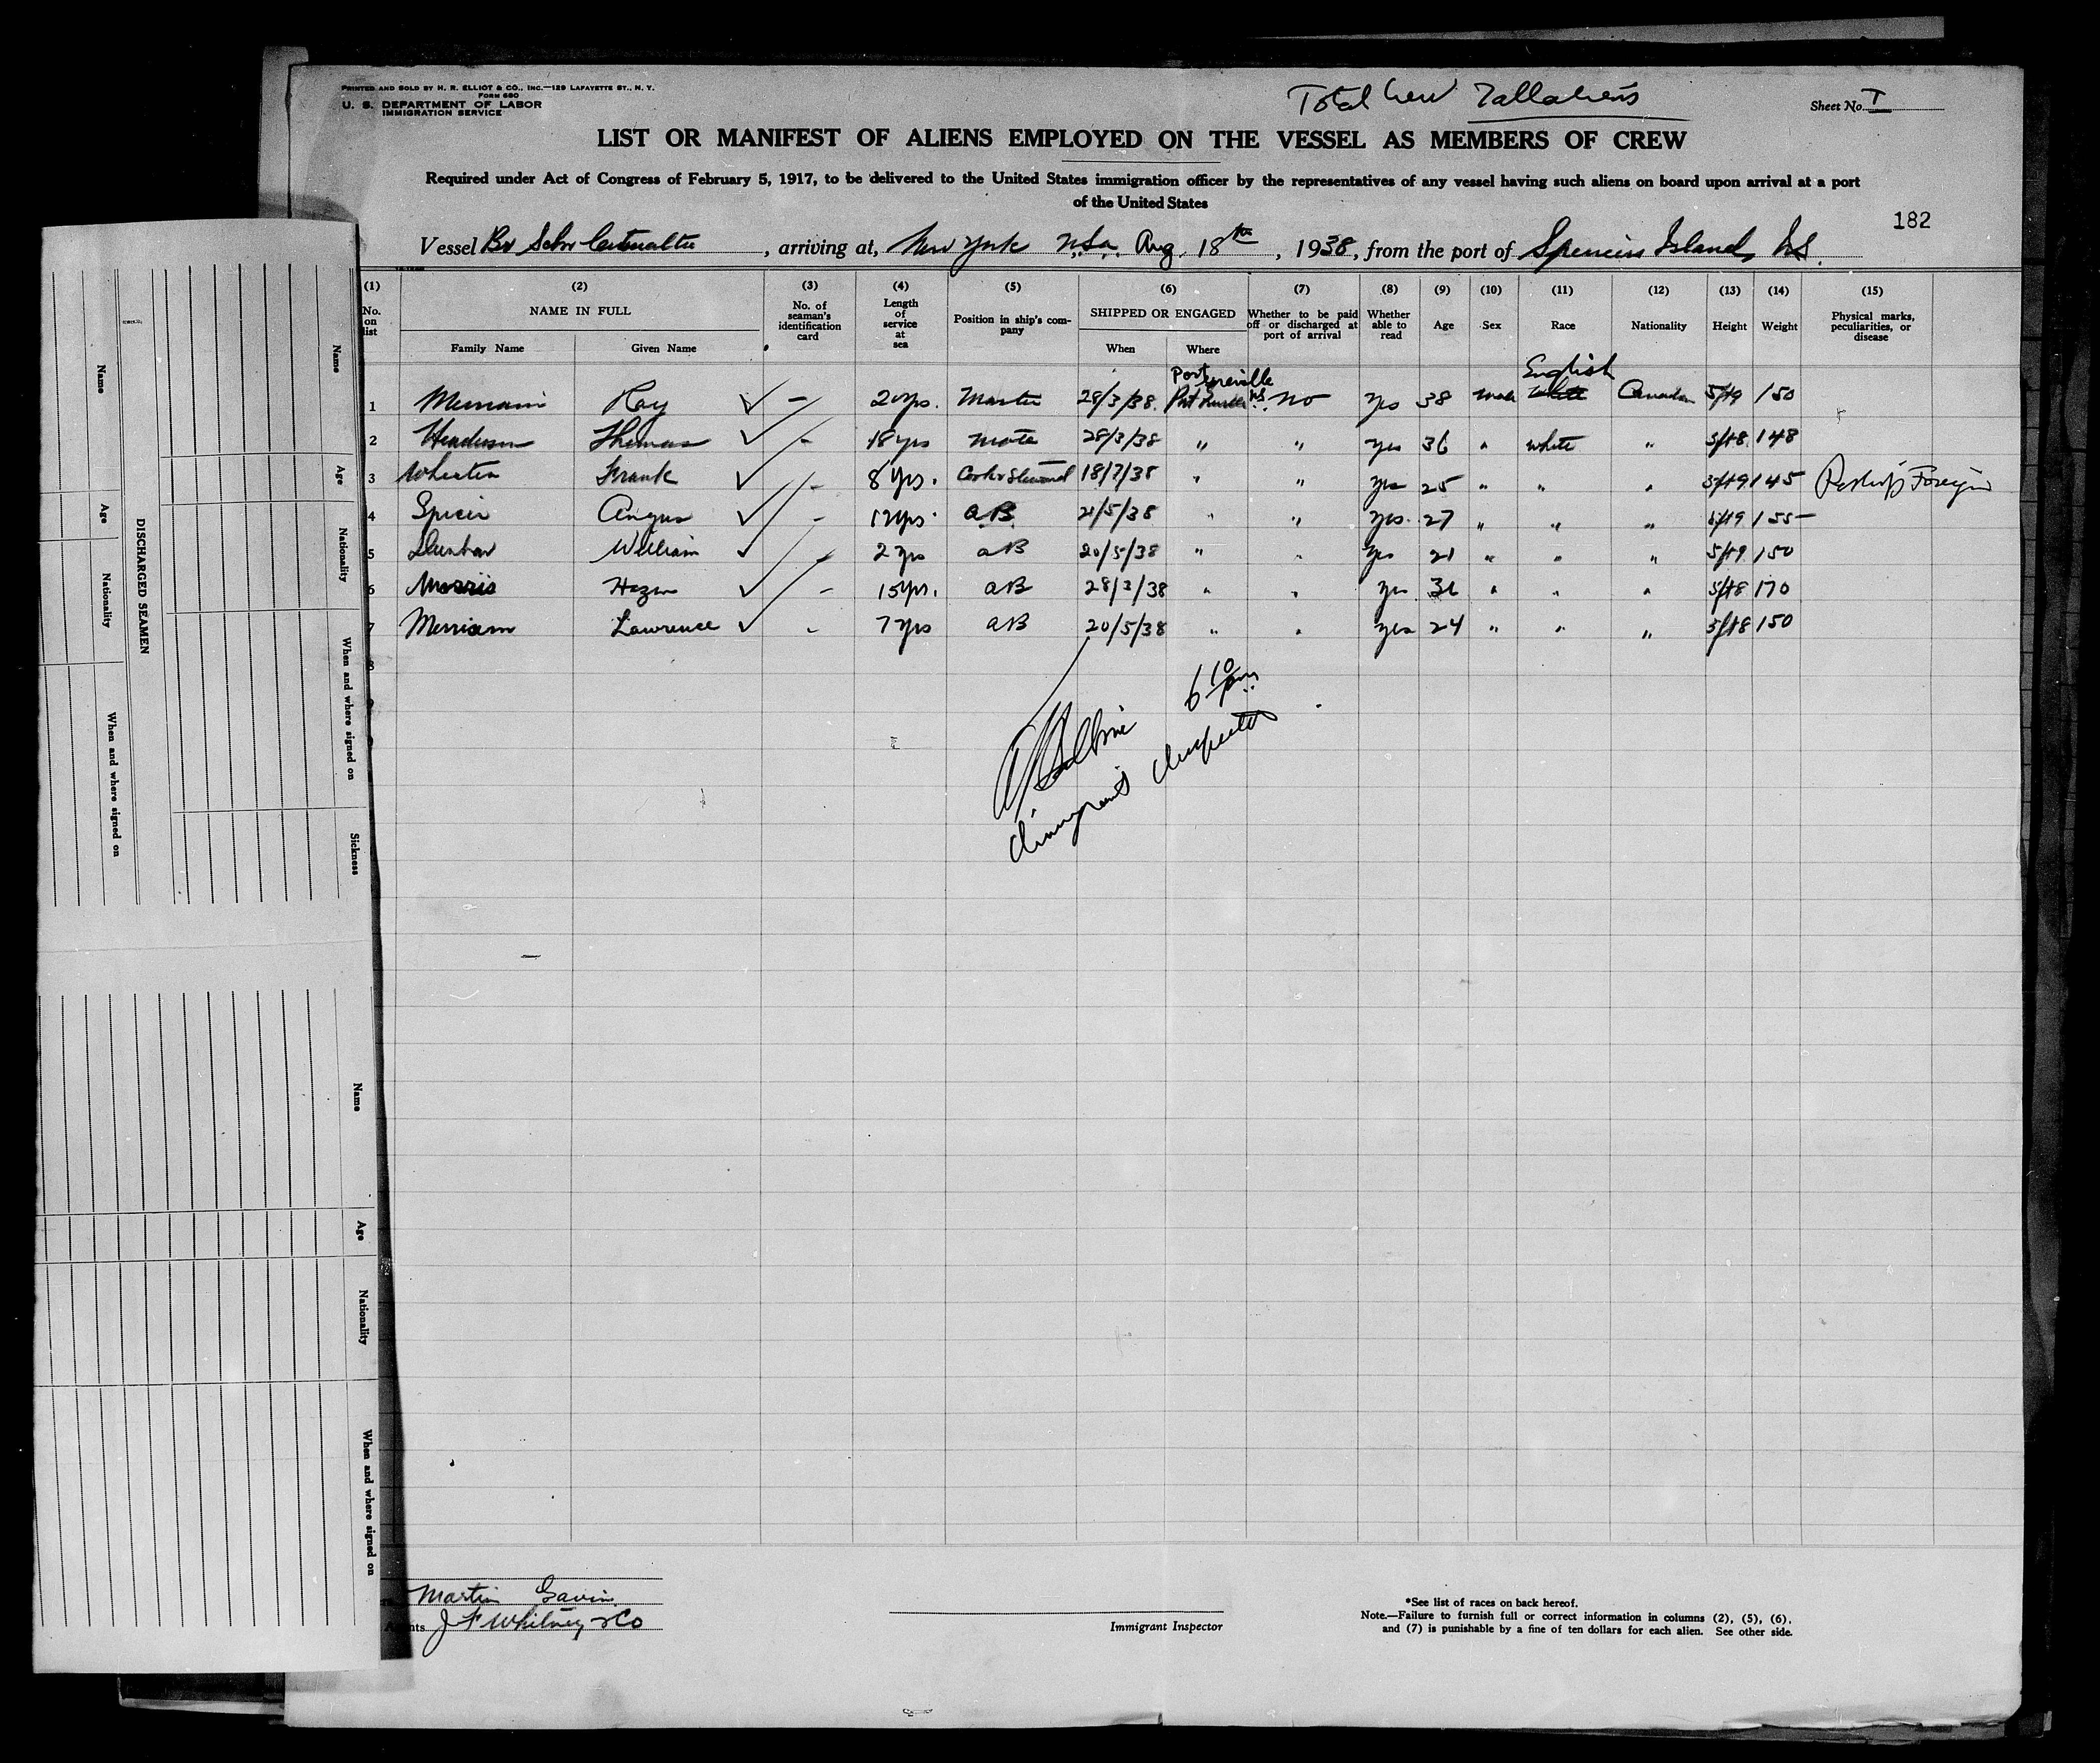 PRINTED AND SOLD BY H. R. ELLIOT & CO., INC.—129 LAFAYETTE ST., N. Y.
FORM 680
U. S. DEPARTMENT OF LABOR
IMMIGRATION SERVICE
Total Crew 7 all aliens
Sheet No. I
LIST OR MANIFEST OF ALIENS EMPLOYED ON THE VESSEL AS MEMBERS OF CREW
Required under Act of Congress of February 5, 1917, to be delivered to the United States immigration officer by the representatives of any vessel having such aliens on board upon arrival at a port
of the United States
182
Vessel Br Schr , arriving at, New York Aug. 18th, 1938, from the port of Spencers Island, N.S.
(1) (2) (3) (4) (5) (6) (7) (8) (9) (10) (11) (12) (13) (14) (15)
No. on list NAME IN FULL Family Name Given Name No. of seaman's identification card Length of service at sea Position in ship's company SHIPPED OR ENGAGED When Where Whether to be paid off or discharged at port of arrival Whether able to read Age Sex Race Nationality Height Weight Physical marks, peculiarities, or disease
Port Greville English
1 Merriam Ray ✓ – 20 yrs. Master 28/3/38 N.S. No Yes 38 Male White Canadian 5ft9 150
2 Henderson Thomas ✓ – 18 yrs Mate 28/3/38 " " yes 36 " White " 5ft8 148
3 Wheaton Frank ✓ – 8 yrs. Cook & Steward 18/7/38 " " yes 25 " " " 5ft9 145
4 Spicer Angus ✓ – 12 yrs. A.B. 21/5/38 " " yes. 27 " " " 5ft9 155
5 Dunbar William ✓ – 2 yrs AB 20/5/38 " " yes 21 " " " 5ft9 150
6 Morris Hazen ✓ – 15 yrs. AB 28/3/38 " " yes 36 " " " 5ft8 170
7 Merriam Lawrence ✓ – 7 yrs AB 20/5/38 " " yes 24 " " " 5ft8 150
8
6 10 pm
Immigrant Inspector
Martin Gavin
Agents J F Whitney & Co
Immigrant Inspector
*See list of races on back hereof.
Note.—Failure to furnish full or correct information in columns (2), (5), (6),
and (7) is punishable by a fine of ten dollars for each alien. See other side.
DISCHARGED SEAMEN
Name
Age
Nationality
When and where signed on
Name
Age
Nationality
When and where signed on
Sickness
Name
Age
Nationality
When and where signed on